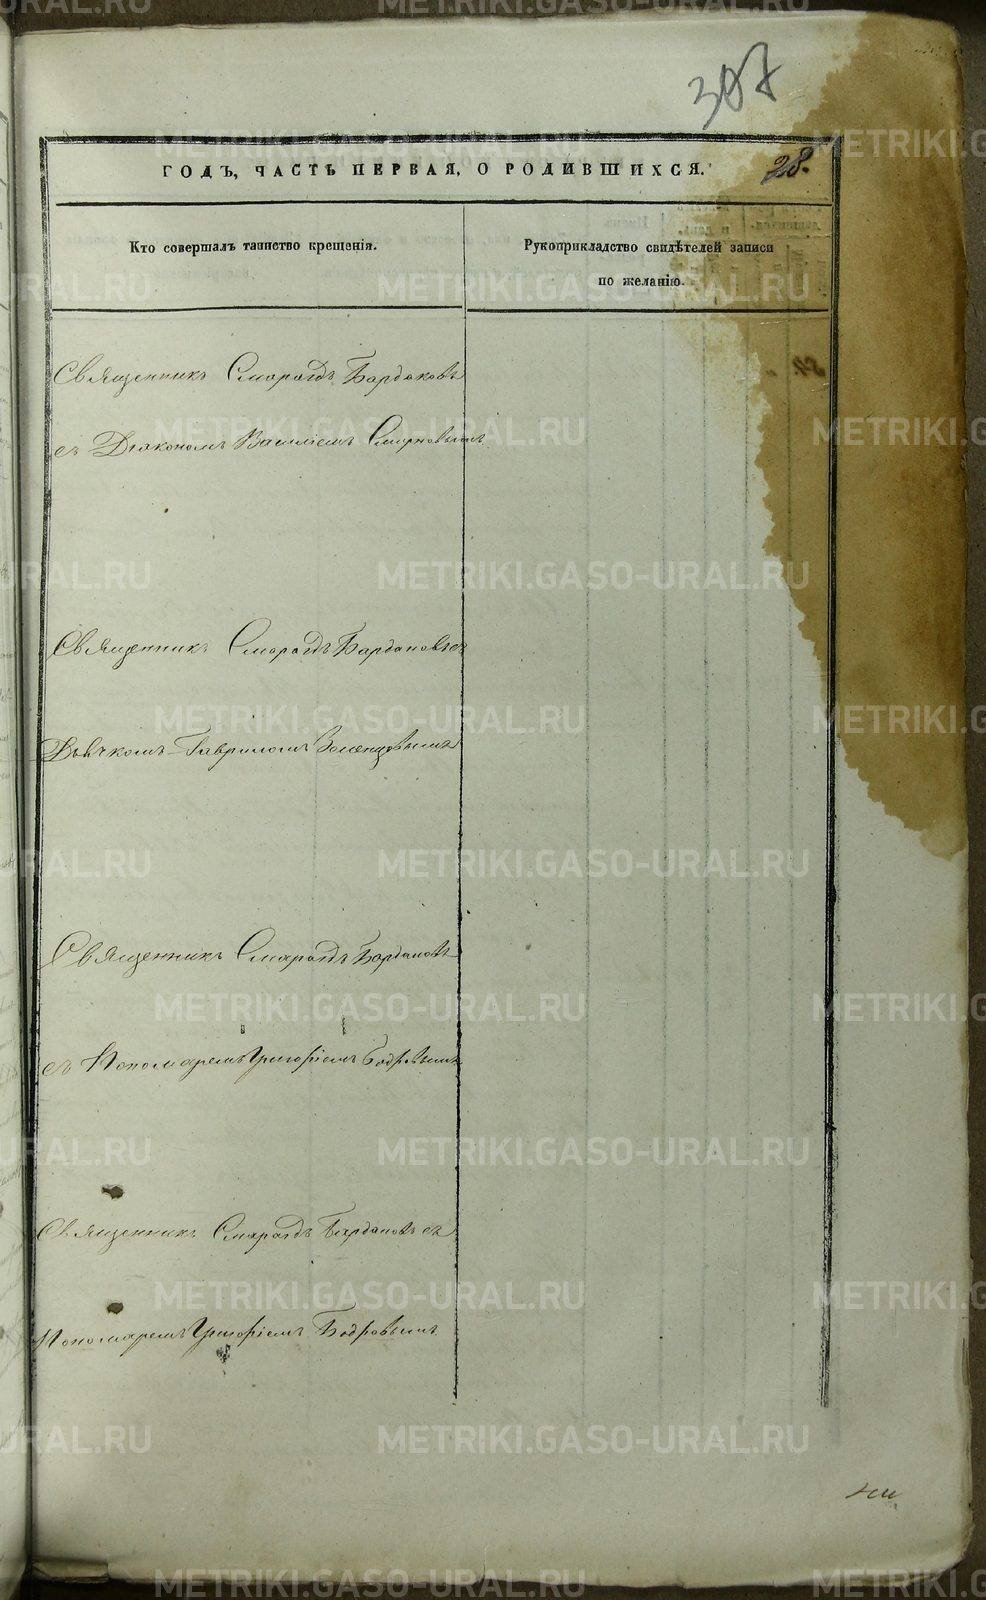 307
ГОДЪ, ЧАСТЬ ПЕРВАЯ, О РОДИВШИХСЯ.
28.
Кто совершалъ таинство крещенія.
Рукоприкладство свидѣтелей записи
по желанію.
Священникъ Смарагдъ Бардаковъ
съ Діякономъ Василіемъ Смирновымъ
Священникъ Смарагдъ Бардаковъ съ
Дьячкомъ Гавриломъ
Священникъ Смарагдъ Бардаковъ
съ Пономаремъ Григоріемъ Бодровымъ
Священникъ Смарагдъ Бардаковъ съ
Пономаремъ Григоріемъ Бодровымъ
METRIKI.GASO-URAL.RU